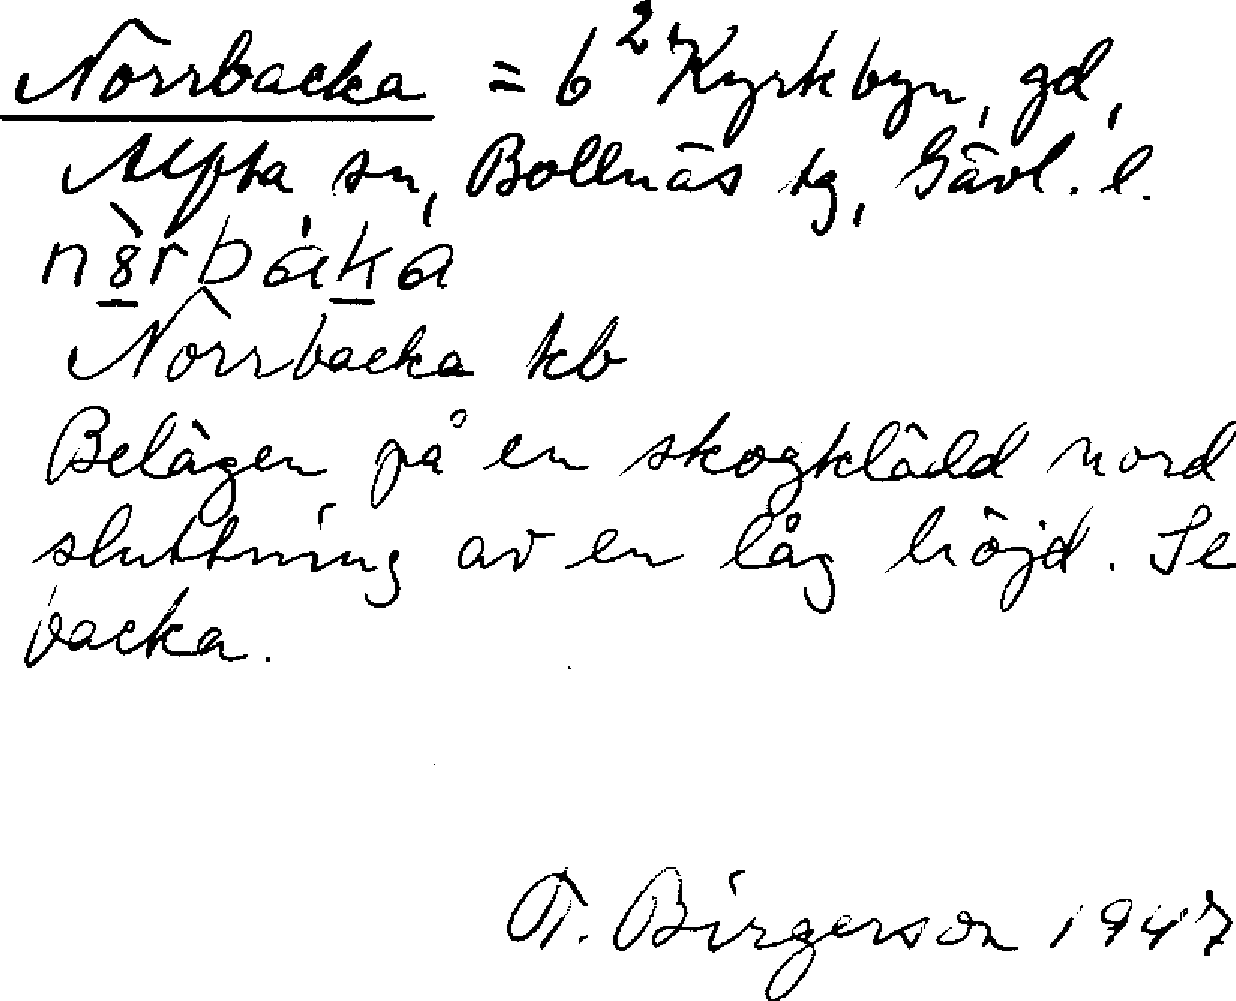 Norrbacka = 6² Kyrkbyn, gd,
Alfta sn, Bollnäs tg, Gävl. l.
Norrbacka kb
Belägen på en skogklädd nord
sluttning av en låg höjd. Se
backa.
T. Birgerson 1947